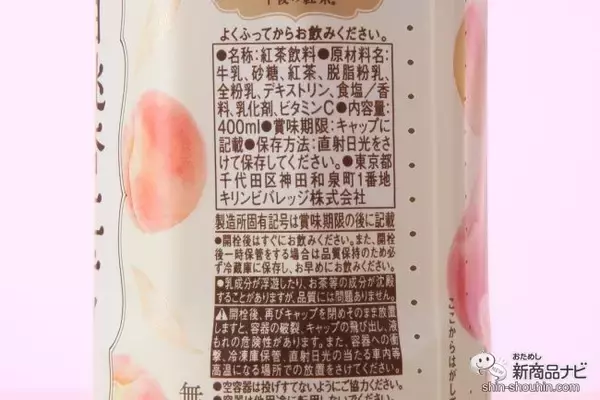 午後の紅茶®
よくふってからお飲みください。
●名称:紅茶飲料●原材料名:
牛乳、砂糖、紅茶、脱脂粉乳、
全粉乳、デキストリン、食塩／香
料、乳化剤、ビタミンC●内容量:
400ml●賞味期限:キャップに
記載●保存方法:直射日光をさ
けて保存してください。●東京都
千代田区神田和泉町1番地
キリンビバレッジ株式会社
製造所固有記号は賞味期限の後に記載
●開栓後はすぐにお飲みください。また、開栓
後一時保管をする場合は品質保持のため必
ず冷蔵庫に保存し、お早めにお飲みください。
●乳成分が浮遊したり、お茶等の成分が沈殿
することがありますが、品質には問題ありません。
⚠開栓後、再びキャップを閉めそのまま放置
しますと、容器の破裂、キャップの飛び出し、液
もれの危険性があります。また、容器への衝
撃、冷凍庫保管、直射日光の当たる車内等
高温になる場所での放置をさけてください。
●空容器は投げすてないようにご協力ください。
●容器は他用途に転用しないでください。
無
ここからはがし
おためし
新商品ナビ
shin-shouhin.com